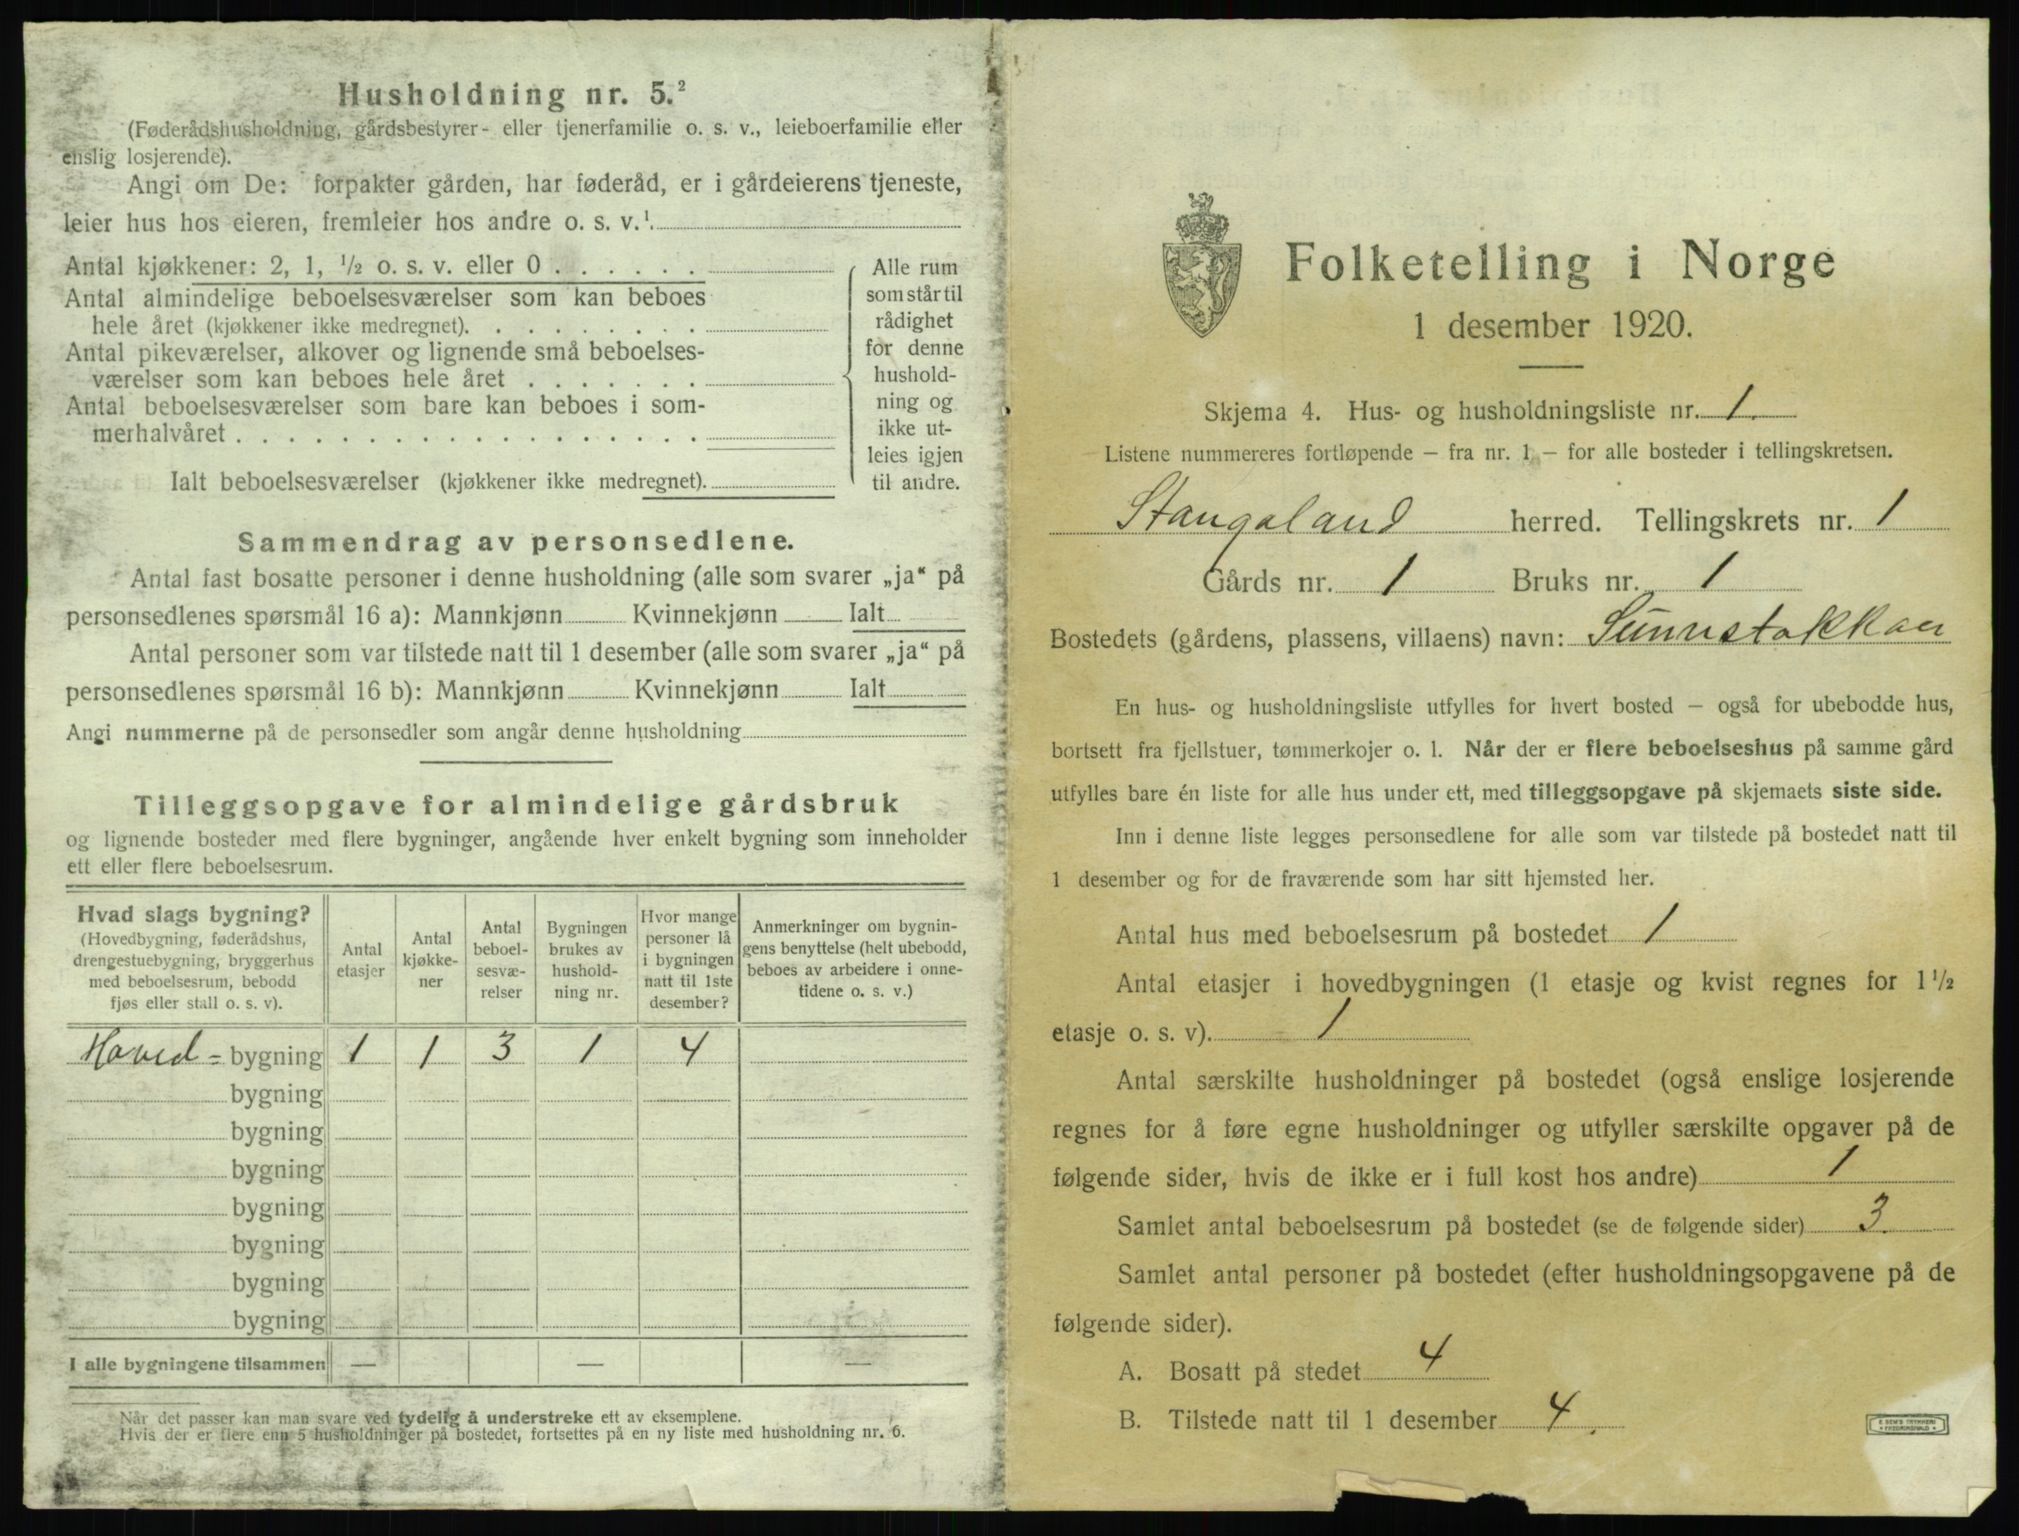 Husholdning nr. 5.²
(Føderådshusholdning, gårdsbestyrer- eller tjenerfamilie o. s. v., leieboerfamilie eller
enslig losjerende).
Angi om De: forpakter gården, har føderåd, er i gårdeierens tjeneste,
leier hus hos eieren, fremleier hos andre o. s. v.¹
Antal kjøkkener: 2, 1, ½ o. s. v. eller 0 . . . . . .
Antal almindelige beboelsesværelser som kan beboes
hele året (kjøkkener ikke medregnet). . . . . . . . .
Antal pikeværelser, alkover og lignende små beboelses-
værelser som kan beboes hele året . . . . . . .
Antal beboelsesværelser som bare kan beboes i som-
merhalvåret . . . . . . . . . . . . . . . . . .
Ialt beboelsesværelser (kjøkkener ikke medregnet).
Alle rum
som står til
rådighet
for denne
hushold-
ning og
ikke ut-
leies igjen
til andre.
Sammendrag av personsedlene.
Antal fast bosatte personer i denne husholdning (alle som svarer „ja“ på
personsedlenes spørsmål 16 a): Mannkjønn Kvinnekjønn Ialt
Antal personer som var tilstede natt til 1 desember (alle som svarer „ja“ på
personsedlenes spørsmål 16 b): Mannkjønn Kvinnekjønn Ialt
Angi nummerne på de personsedler som angår denne husholdning
Tilleggsopgave for almindelige gårdsbruk
og lignende bosteder med flere bygninger, angående hver enkelt bygning som inneholder
ett eller flere beboelsesrum.
Hvad slags bygning?
(Hovedbygning, føderådshus,
drengestuebygning, bryggerhus
med beboelsesrum, bebodd
fjøs eller stall o. s. v).
Antal
etasjer
Antal
kjøkke-
ner
Antal
beboel-
sesvæ-
relser
Bygningen
brukes av
hushold-
ning nr.
Hvor mange
personer lå
i bygningen
natt til 1ste
desember?
Anmerkninger om bygnin-
gens benyttelse (helt ubebodd,
beboes av arbeidere i onne-
tidene o. s. v.)
Hoved= bygning 1 1 3 1 4
bygning
bygning
bygning
bygning
bygning
bygning
bygning
I alle bygningene tilsammen — — —
Når det passer kan man svare ved tydelig å understreke ett av eksemplene.
Hvis der er flere enn 5 husholdninger på bostedet, fortsettes på en ny liste med husholdning nr. 6.
Folketelling i Norge
1 desember 1920.
Skjema 4. Hus- og husholdningsliste nr. 1.
Listene nummereres fortløpende – fra nr. 1 – for alle bosteder i tellingskretsen.
Stangaland herred. Tellingskrets nr. 1
Gårds nr. 1 Bruks nr. 1
Bostedets (gårdens, plassens, villaens) navn: Sunnstokkan
En hus- og husholdningsliste utfylles for hvert bosted – også for ubebodde hus,
bortsett fra fjellstuer, tømmerkojer o. l. Når der er flere beboelseshus på samme gård
utfylles bare én liste for alle hus under ett, med tilleggsopgave på skjemaets siste side.
Inn i denne liste legges personsedlene for alle som var tilstede på bostedet natt til
1 desember og for de fraværende som har sitt hjemsted her.
Antal hus med beboelsesrum på bostedet 1
Antal etasjer i hovedbygningen (1 etasje og kvist regnes for 1 ½
etasje o. s. v). 1
Antal særskilte husholdninger på bostedet (også enslige losjerende
regnes for å føre egne husholdninger og utfyller særskilte opgaver på de
følgende sider, hvis de ikke er i full kost hos andre) 1
Samlet antal beboelsesrum på bostedet (se de følgende sider) 3.
Samlet antal personer på bostedet (efter husholdningsopgavene på de
følgende sider).
A. Bosatt på stedet 4
B. Tilstede natt til 1 desember 4.